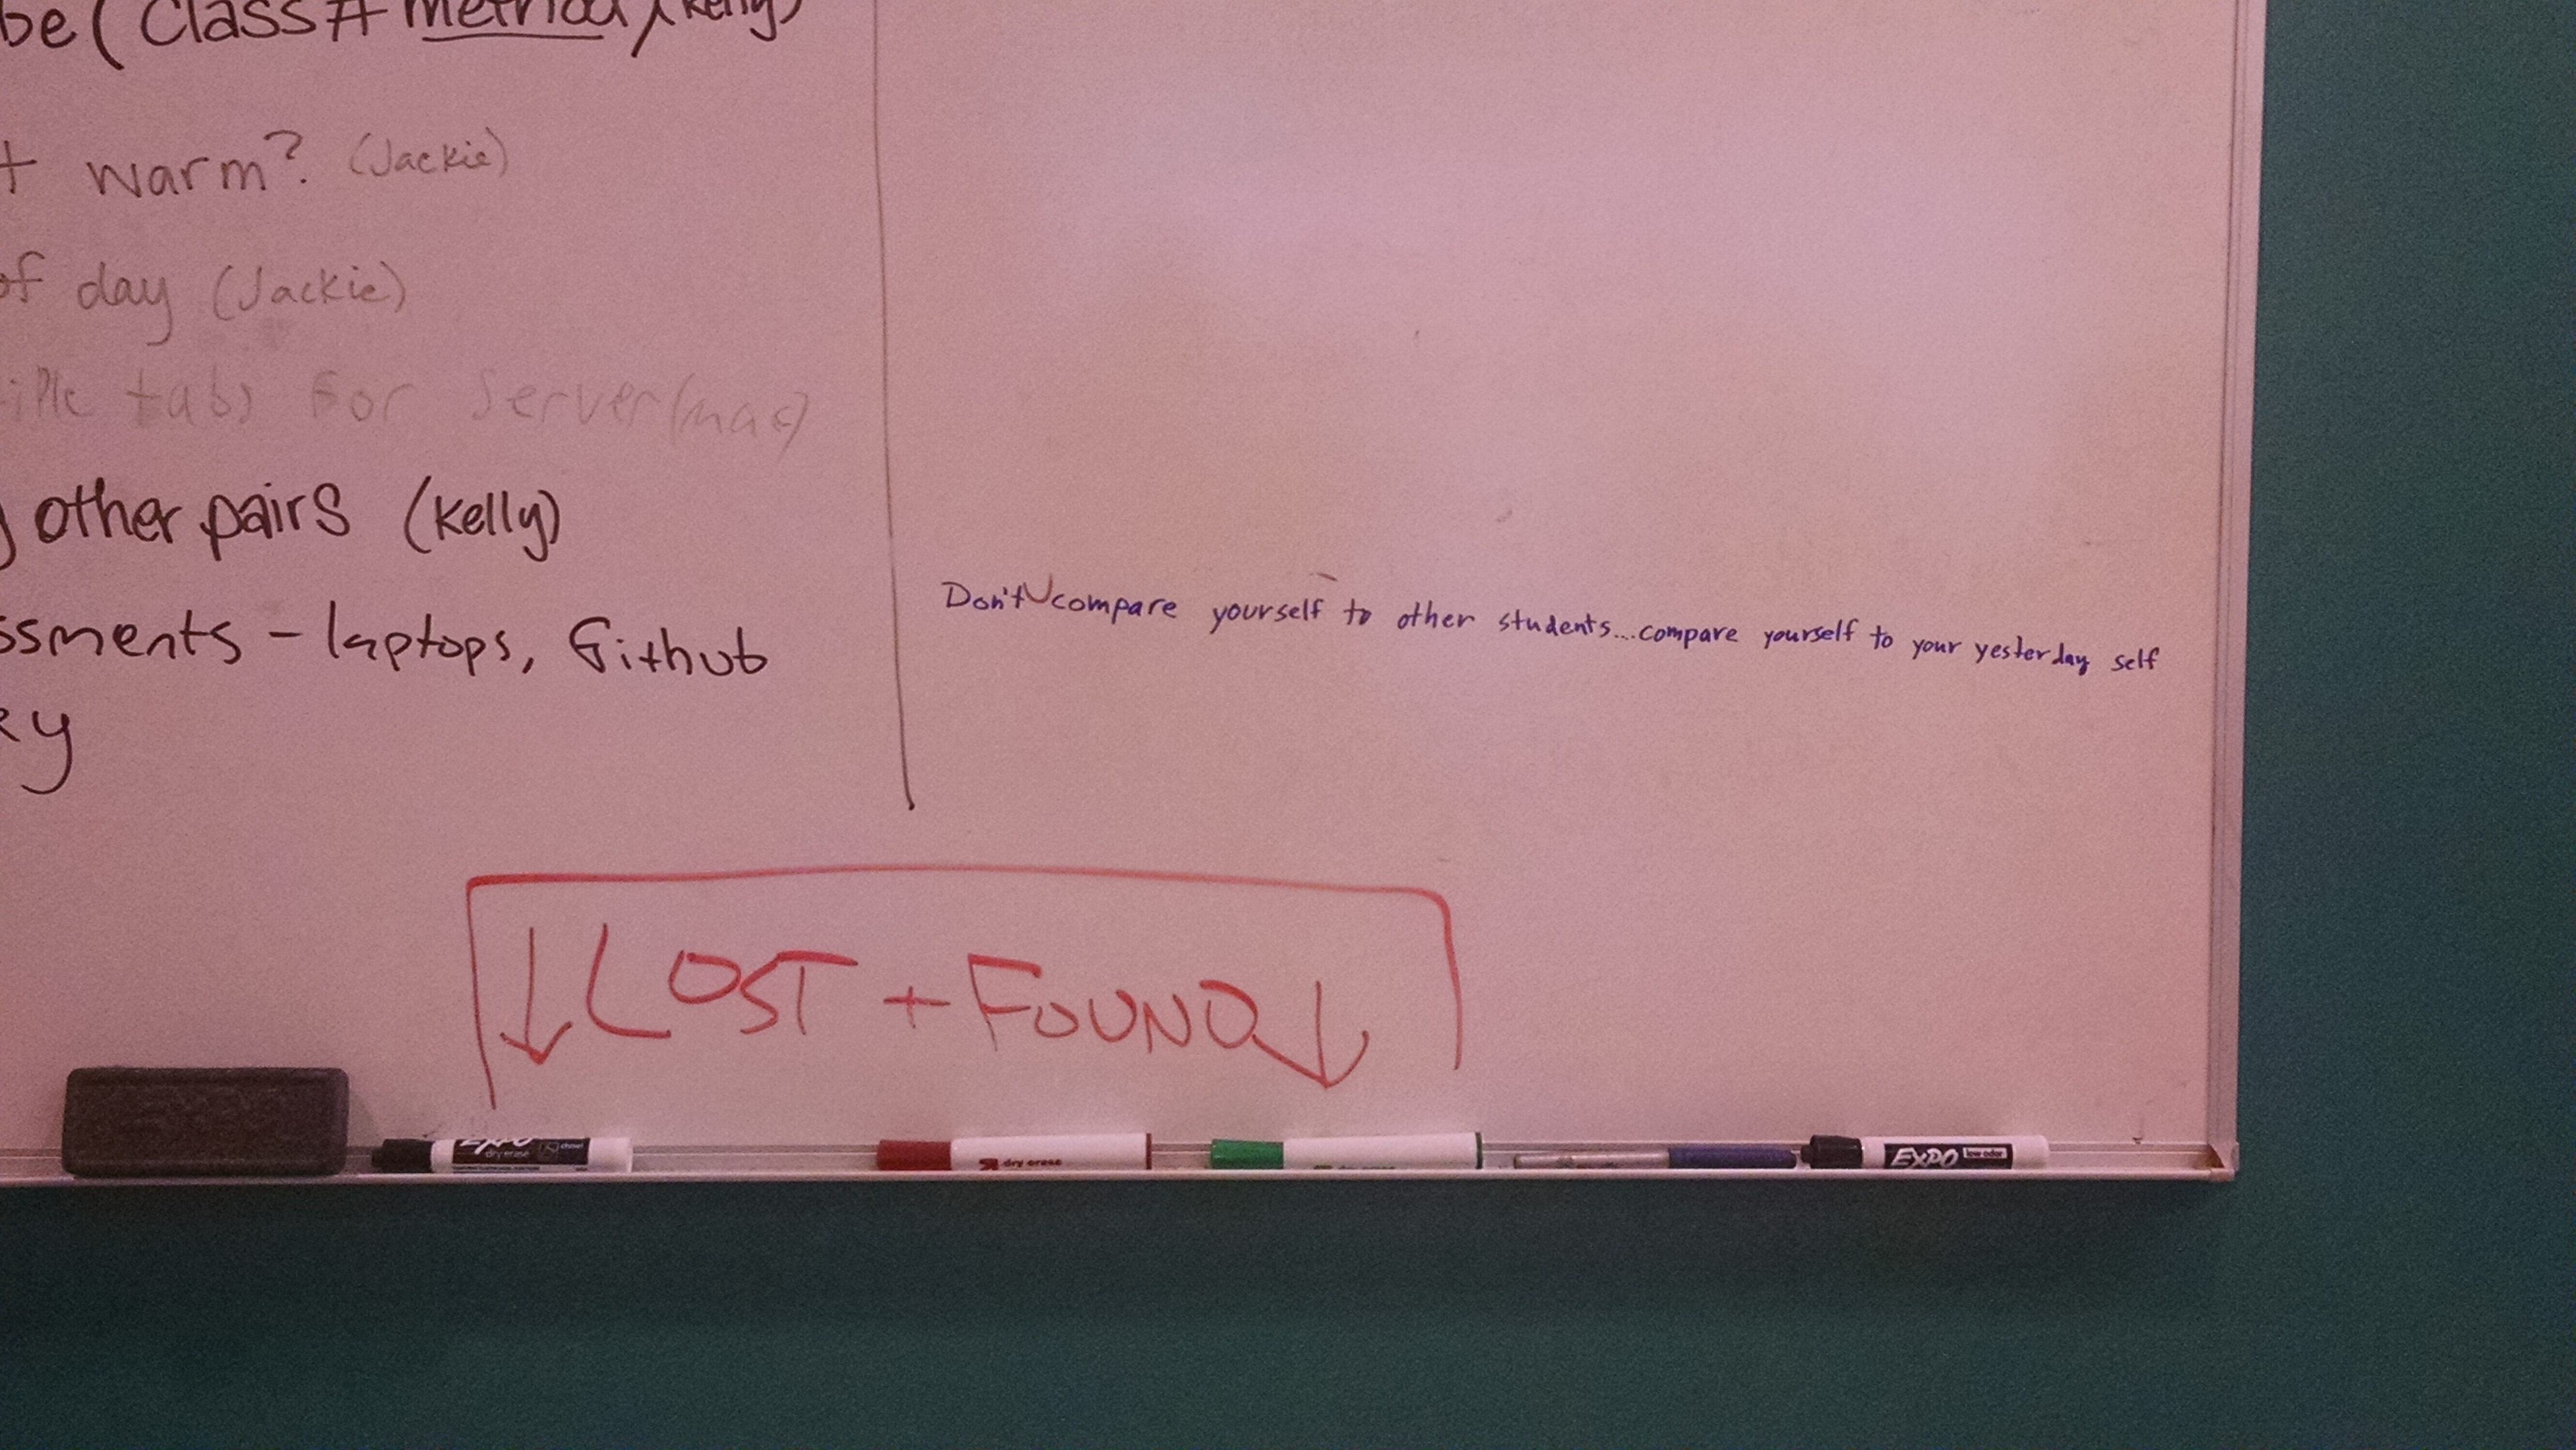 be (Class # method) (Kelly)
warm? (Jackie)
of day (Jackie)
tabs for server (mac)
other pairs (Kelly)
ssments - laptops, Github
Don't compare yourself to other students...compare yourself to your yesterday self
↓ LOST + FOUND ↓
EXPO dry erase chisel
dry erase
dry erase
EXPO low odor